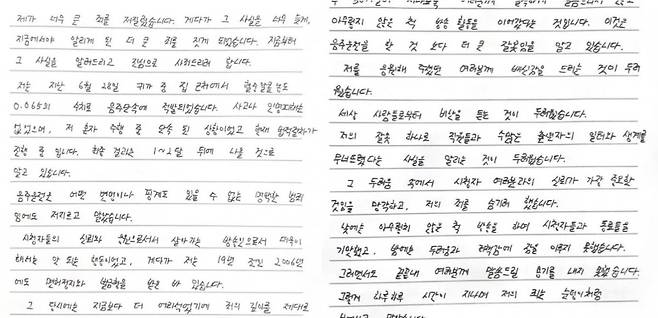 제가 너무 큰 죄를 저질렀습니다. 게다가 그 사실을 너무 늦게,
지금에서야 알리게 된 더 큰 죄를 짓게 되었습니다. 지금부터
그 사실을 알려드리고 진심으로 사죄드리려 합니다.
저는 지난 6월 28일 귀가 중 집 근처에서 혈중알콜농도
0.065의 수치로 음주단속에 적발되었습니다. 사고나 인명피해는
없었으며, 저 혼자 수행 중 단속 된 상황이었고 현재 법적절차가
진행 중 입니다. 최종 결과는 1~2달 뒤에 나올 것으로
알고 있습니다.
음주운전은 어떤 변명이나 핑계도 있을 수 없는 명백한 범죄
임에도 저지르고 말았습니다.
시청자들의 신뢰와 사랑으로서 살아가는 방송인으로서 더욱이
해서는 안 되는 행동이었고, 게다가 저는 19년 전인 2006년
에도 면허정지와 벌금형을 받은 바 있습니다.
그 당시에는 지금보다 더 어리석었기에 저의 잘못을 제대로
아무렇지 않은 척 방송 활동을 이어갔다는 것입니다. 이것은
음주운전을 한 것 보다 더 큰 잘못임을 알고 있습니다.
저를 응원해 주셨던 여러분께 배신감을 드리는 것이 두려
웠습니다.
세상 사람들로부터 비난을 듣는 것이 두려웠습니다.
저의 잘못 하나로 직원들과 수많은 출연자의 일터와 생계를
무너뜨렸다는 사실을 알리는 것이 두려웠습니다.
그 두려움 속에서 시청자 여러분과의 신뢰가 가장 중요한
것임을 망각하고, 저의 죄를 숨기려 했습니다.
낮에는 아무렇지 않은 척 방송을 하며 시청자들과 동료들을
기만했고, 밤에는 두려움과 죄책감에 잠을 이루지 못했습니다.
그러면서도 끝끝내 여러분께 말씀드릴 용기를 내지 못했습니다
그렇게 하루하루 시간이 지나며 저의 죄는 눈덩이처럼